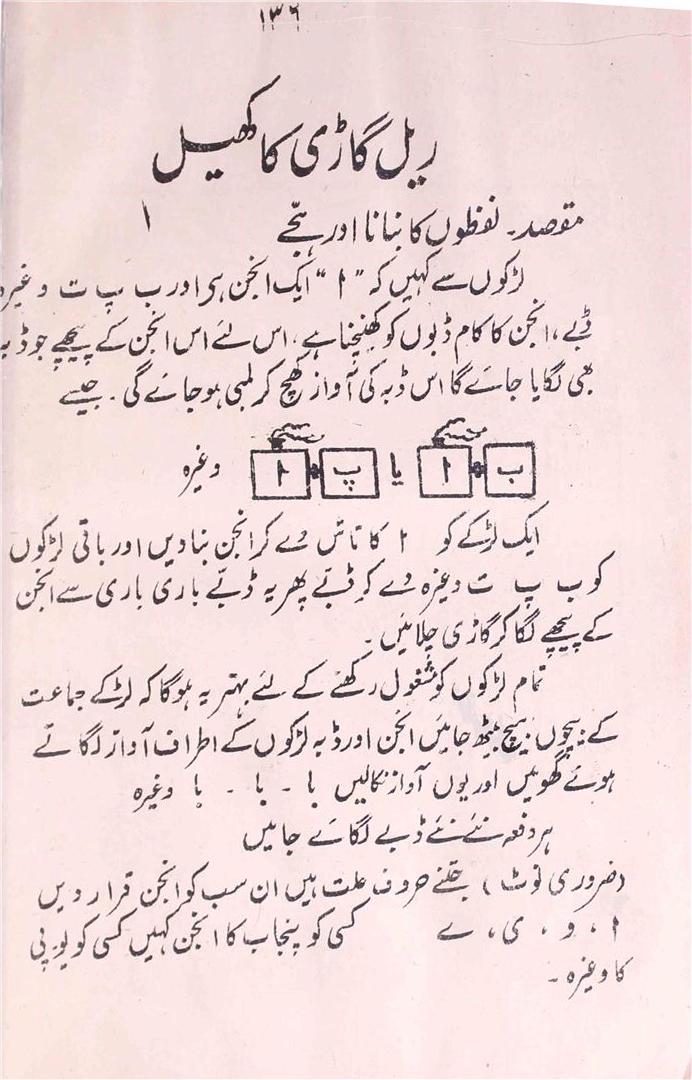 ۱۳۶
ریل گاڑی کا کھیل
مقصد۔ لفظوں کا بنانا اور ہجے ا
لڑکوں سے کہیں کہ "ا" ایک انجن ہی اور ب پ ت وغیرہ
ڈبے، انجن کا کام ڈبوں کو کھینچنا ہے، اس لئے اس انجن کے پیچھے جو ڈبہ
بھی لگایا جائے گا اس ڈبہ کی آواز کھچ کر لمبی ہو جائے گی۔ جیسے
ب ا یا پ ا وغیرہ
ایک لڑکے کو ا کا تاش دے کر انجن بنا دیں اور باقی لڑکوں
کو ب پ ت وغیرہ دے کر ڈبّے پھر یہ ڈبّے باری باری سے انجن
کے پیچھے لگا کر گاڑی چلائیں۔
تمام لڑکوں کو مشغول رکھنے کے لئے بہتر یہ ہوگا کہ لڑکے جماعت
کے بیچوں بیچ بیٹھ جائیں انجن اور ڈبہ لڑکوں کے اطراف آواز لگاتے
ہوئے گھومیں اور یوں آواز نکالیں با - با - با وغیرہ
ہر دفعہ نئے نئے ڈبے لگائے جائیں
(ضروری نوٹ) جتنے حروف علت ہیں ان سب کو انجن قرار دیں
ا، و، ی، ے کسی کو پنجاب کا انجن کہیں کسی کو یوپی
کا وغیرہ۔